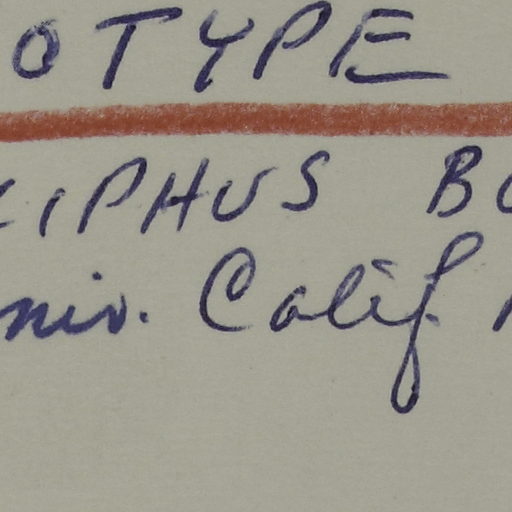 OTYPE
CIPHUS BO
niv. Calif.